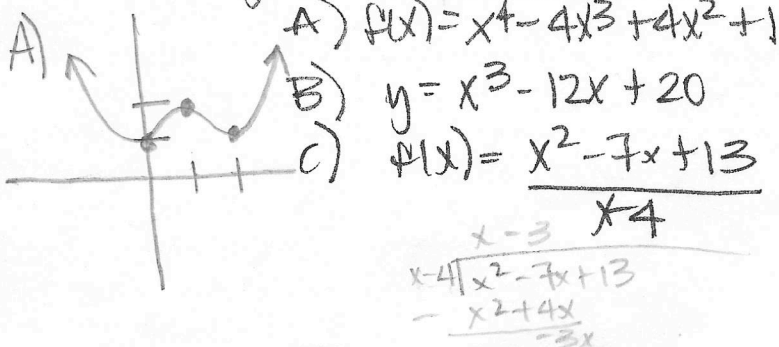 A)
A) f(x) = x⁴ - 4x³ + 4x² + 1
B) y = x³ - 12x + 20
C) f(x) = x² - 7x + 13
x-4
x - 3
x-4 x² - 7x + 13
- x² + 4x
-3x